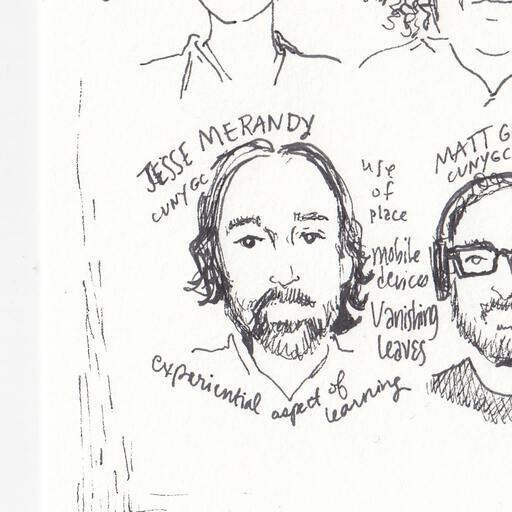 JESSE MERANDY
CUNY GC
use
of
place
mobile
devices
Vanishing
leaves
experiential aspect of
learning
MATT G
CUNYGC